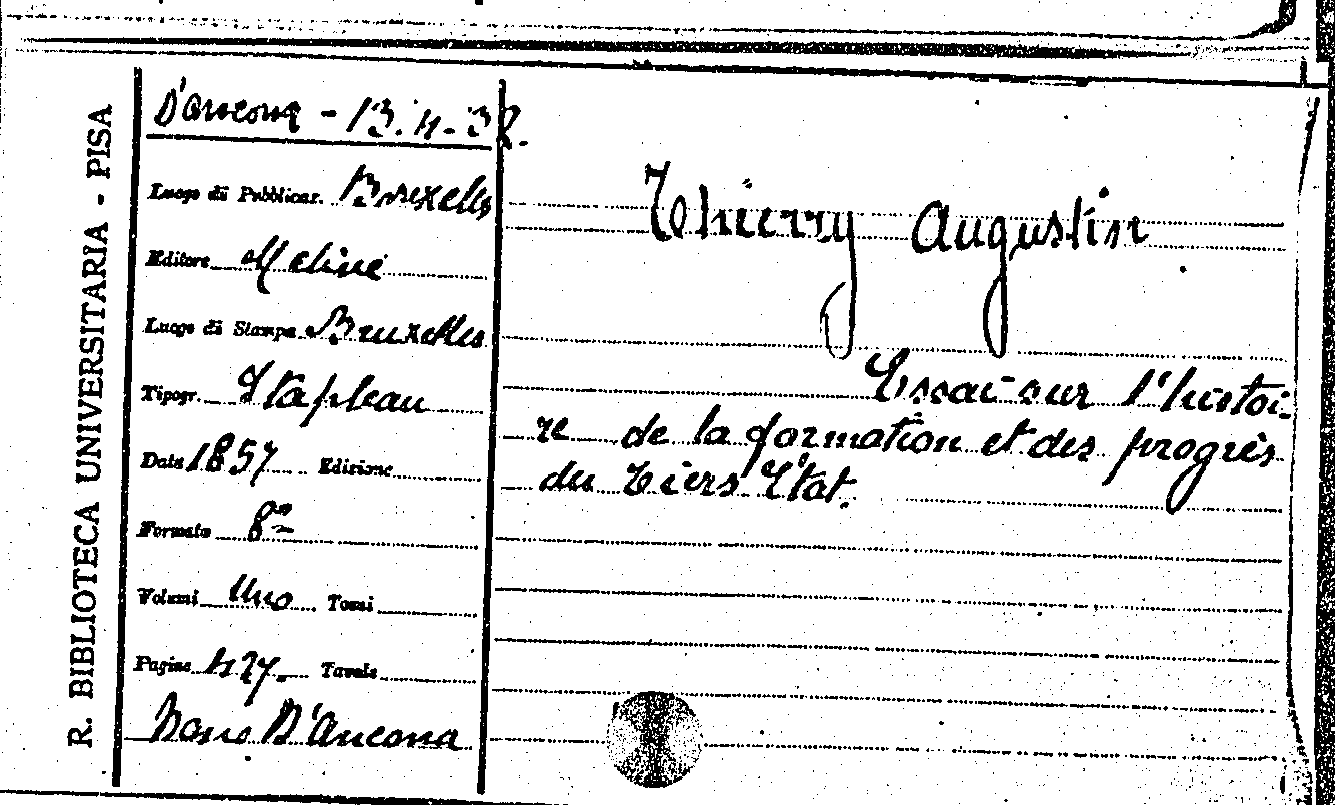 R. BIBLIOTECA UNIVERSITARIA - PISA
D'Ancona - 13.4.32.
Luogo di Pubblicaz. Bruxelles
Editore Meline
Luogo di Stampa Bruxelles
Tipogr. Stapleau
Data 1857 Edizione
Formato 8°
Volumi Uno Tomi
Pagine 427 Tavole
Dono D'Ancona
Thierry Augustin
Essai sur l'histoi-
re de la formation et des progrès
du Tiers État.